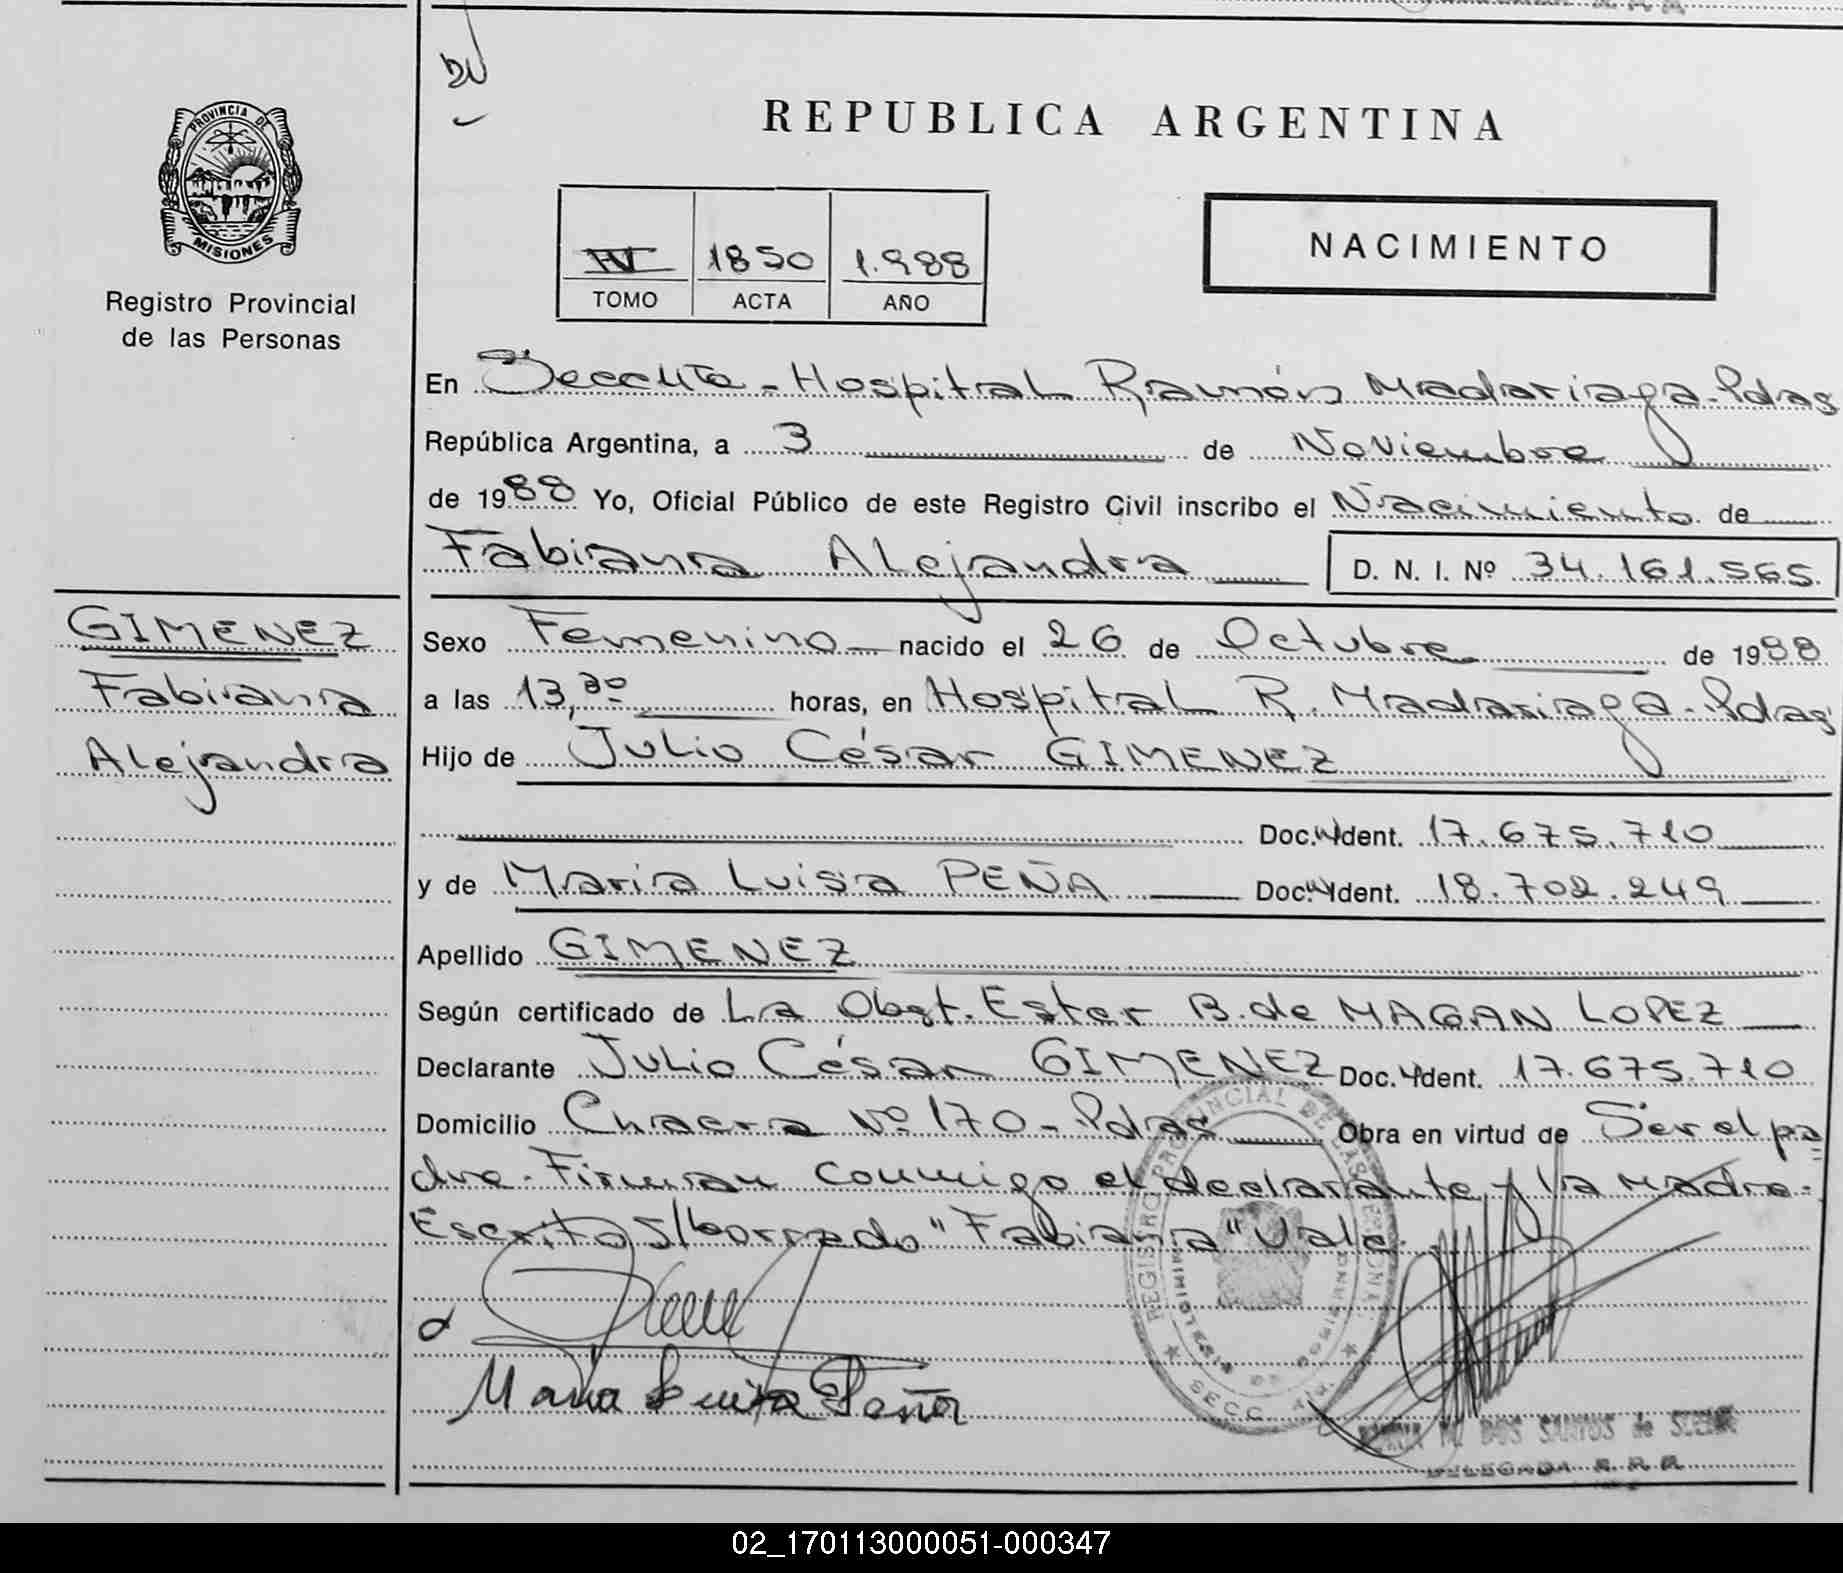 DV
REPUBLICA ARGENTINA
PROVINCIA DE
MISIONES
Registro Provincial
de las Personas
IV 1850 1.988
TOMO ACTA AÑO
NACIMIENTO
En Hospital Ramón Madariaga-Pdas
República Argentina, a 3 de Noviembre
de 1988 Yo, Oficial Público de este Registro Civil inscribo el Nacimiento de
Fabiana Alejandra D. N. I. Nº 34.161.565.
GIMENEZ
Fabiana
Alejandra
Sexo Femenino nacido el 26 de Octubre de 1988
a las 13,30 horas, en Hospital R. Madariaga-Pdas
Hijo de Julio César GIMENEZ
Doc. Ident. 17.675.710
y de Maria Luisa PEÑA Doc. Ident. 18.702.249
Apellido GIMENEZ
Según certificado de La Obst. Ester B. de MAGAN LOPEZ
Declarante Julio César GIMENEZ Doc. Ident. 17.675.710
Domicilio Chacra Nº 170-Pdas Obra en virtud de Ser el pa
dre. Firman conmigo el declarante y la madre.
Escrito s/borrado "Fabiana" Vale.
REGISTRO PROVINCIAL DE LAS PERSONAS
MISIONES
SECC.
Maria Luisa Peña
DOS SANTOS de
DELEGADA R. P. P.
02_170113000051-000347